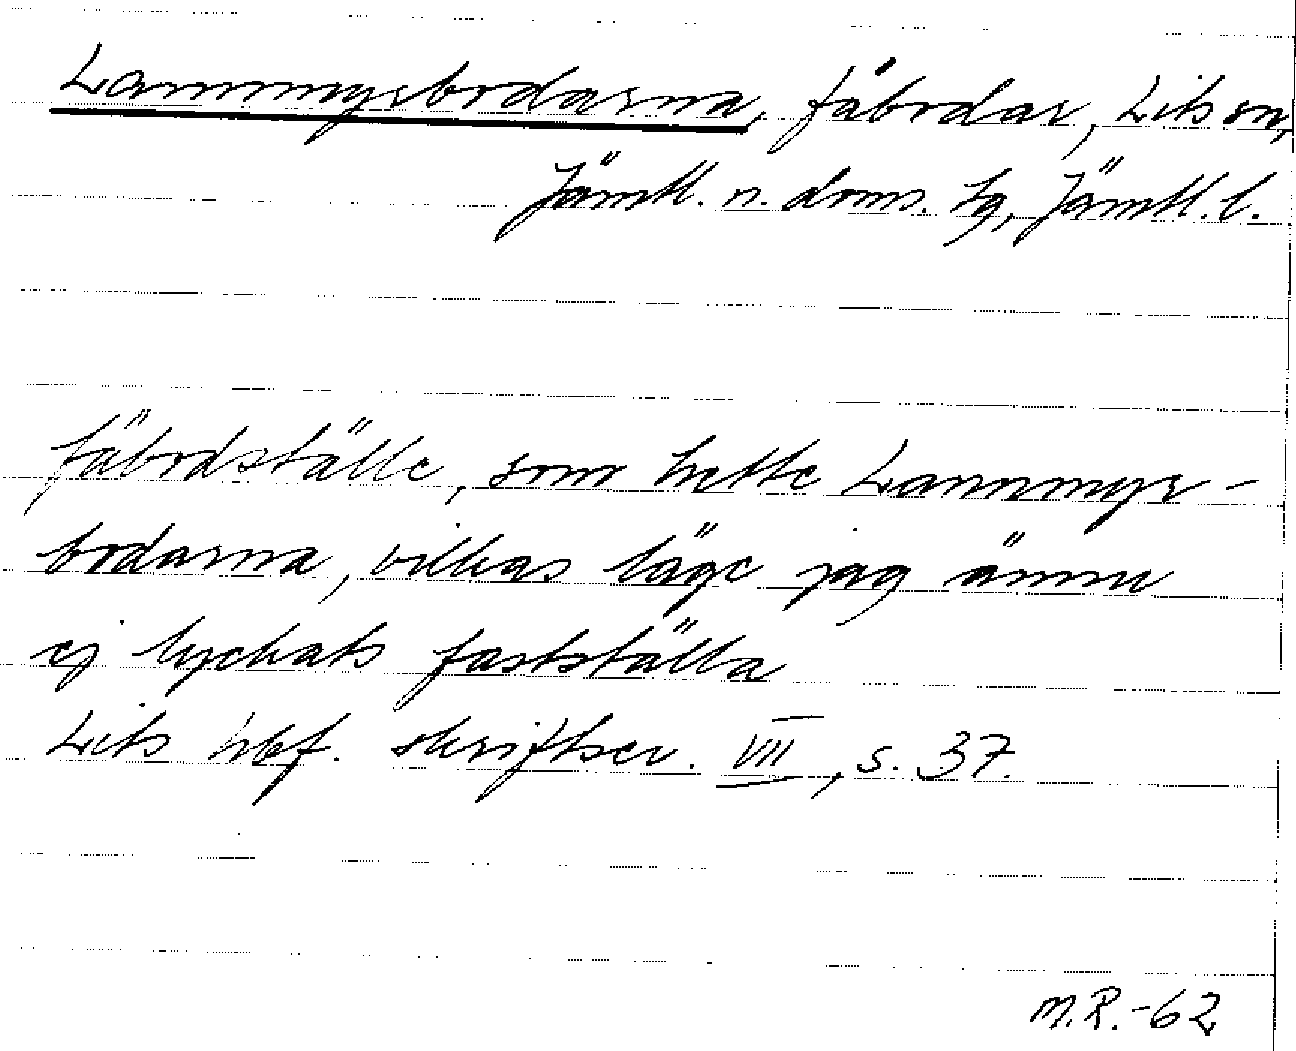 Lannmyrbodarna, fäbodar, Lits sn,
Jämtl. n. doms. tg, Jämtl. l.
fäbodställe, som hette Lannmyr-
bodarna, vilkas läge jag ännu
ej lyckats fastställa
Lits hbf. skriftser. VII, s. 37.
M.R.-62